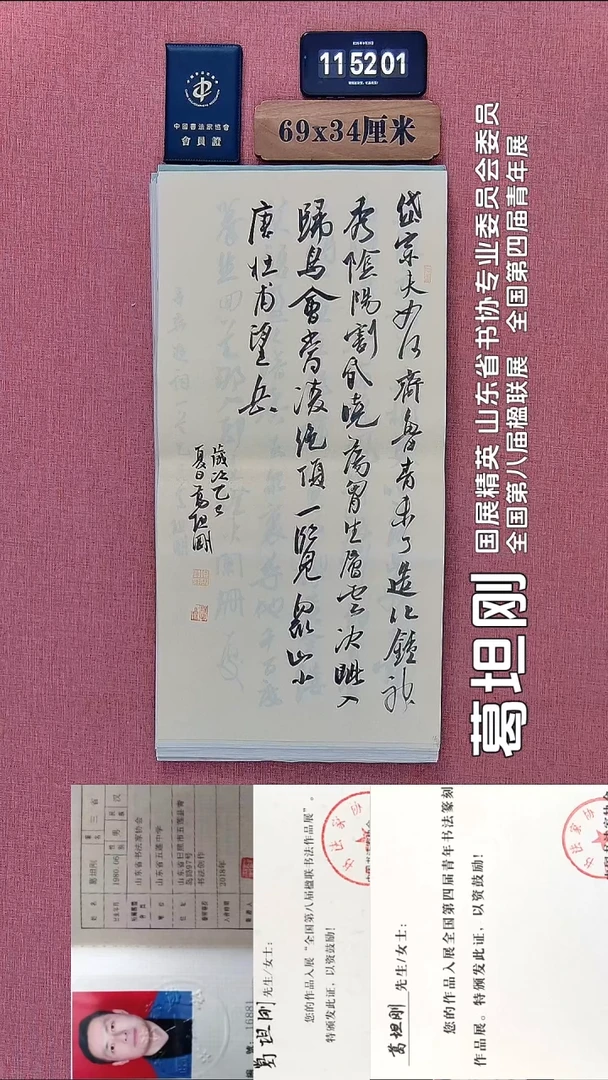 中國書法家協會
會員證
11 52 01
69x34厘米
岱宗夫如何齊魯青未了造化鍾神
秀陰陽割昏曉蕩胷生層雲決眥入
歸鳥會當凌絕頂一覽眾山小
唐杜甫望岳
歲次乙巳
夏日葛坦剛
国展精英 山东省书协专业委员会委员
全国第八届楹联展 全国第四届青年展
葛坦刚
山东省书法家协会
山东省五莲中学
书法创作
2018年
16881
葛坦刚 先生/女士：
您的作品入展“全国第八届楹联书法作品展”。
特颁发此证，以资鼓励！
葛坦刚 先生/女士：
您的作品入展全国第四届青年书法篆刻
作品展。特颁发此证，以资鼓励！